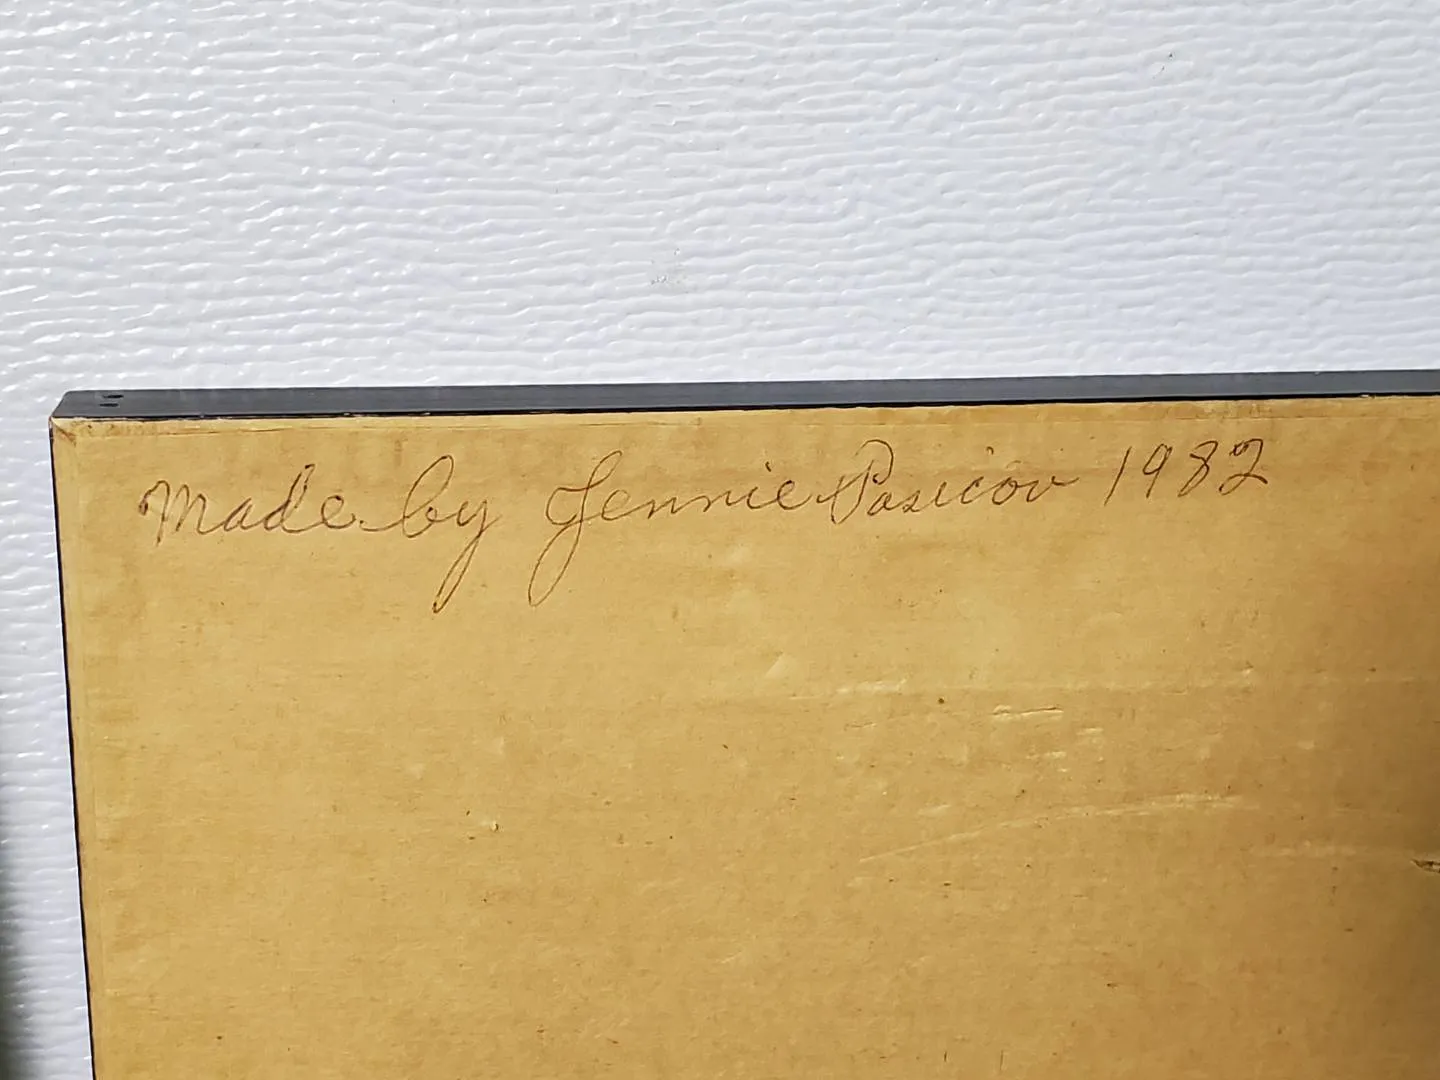 Made by Jennie Pasicov 1982